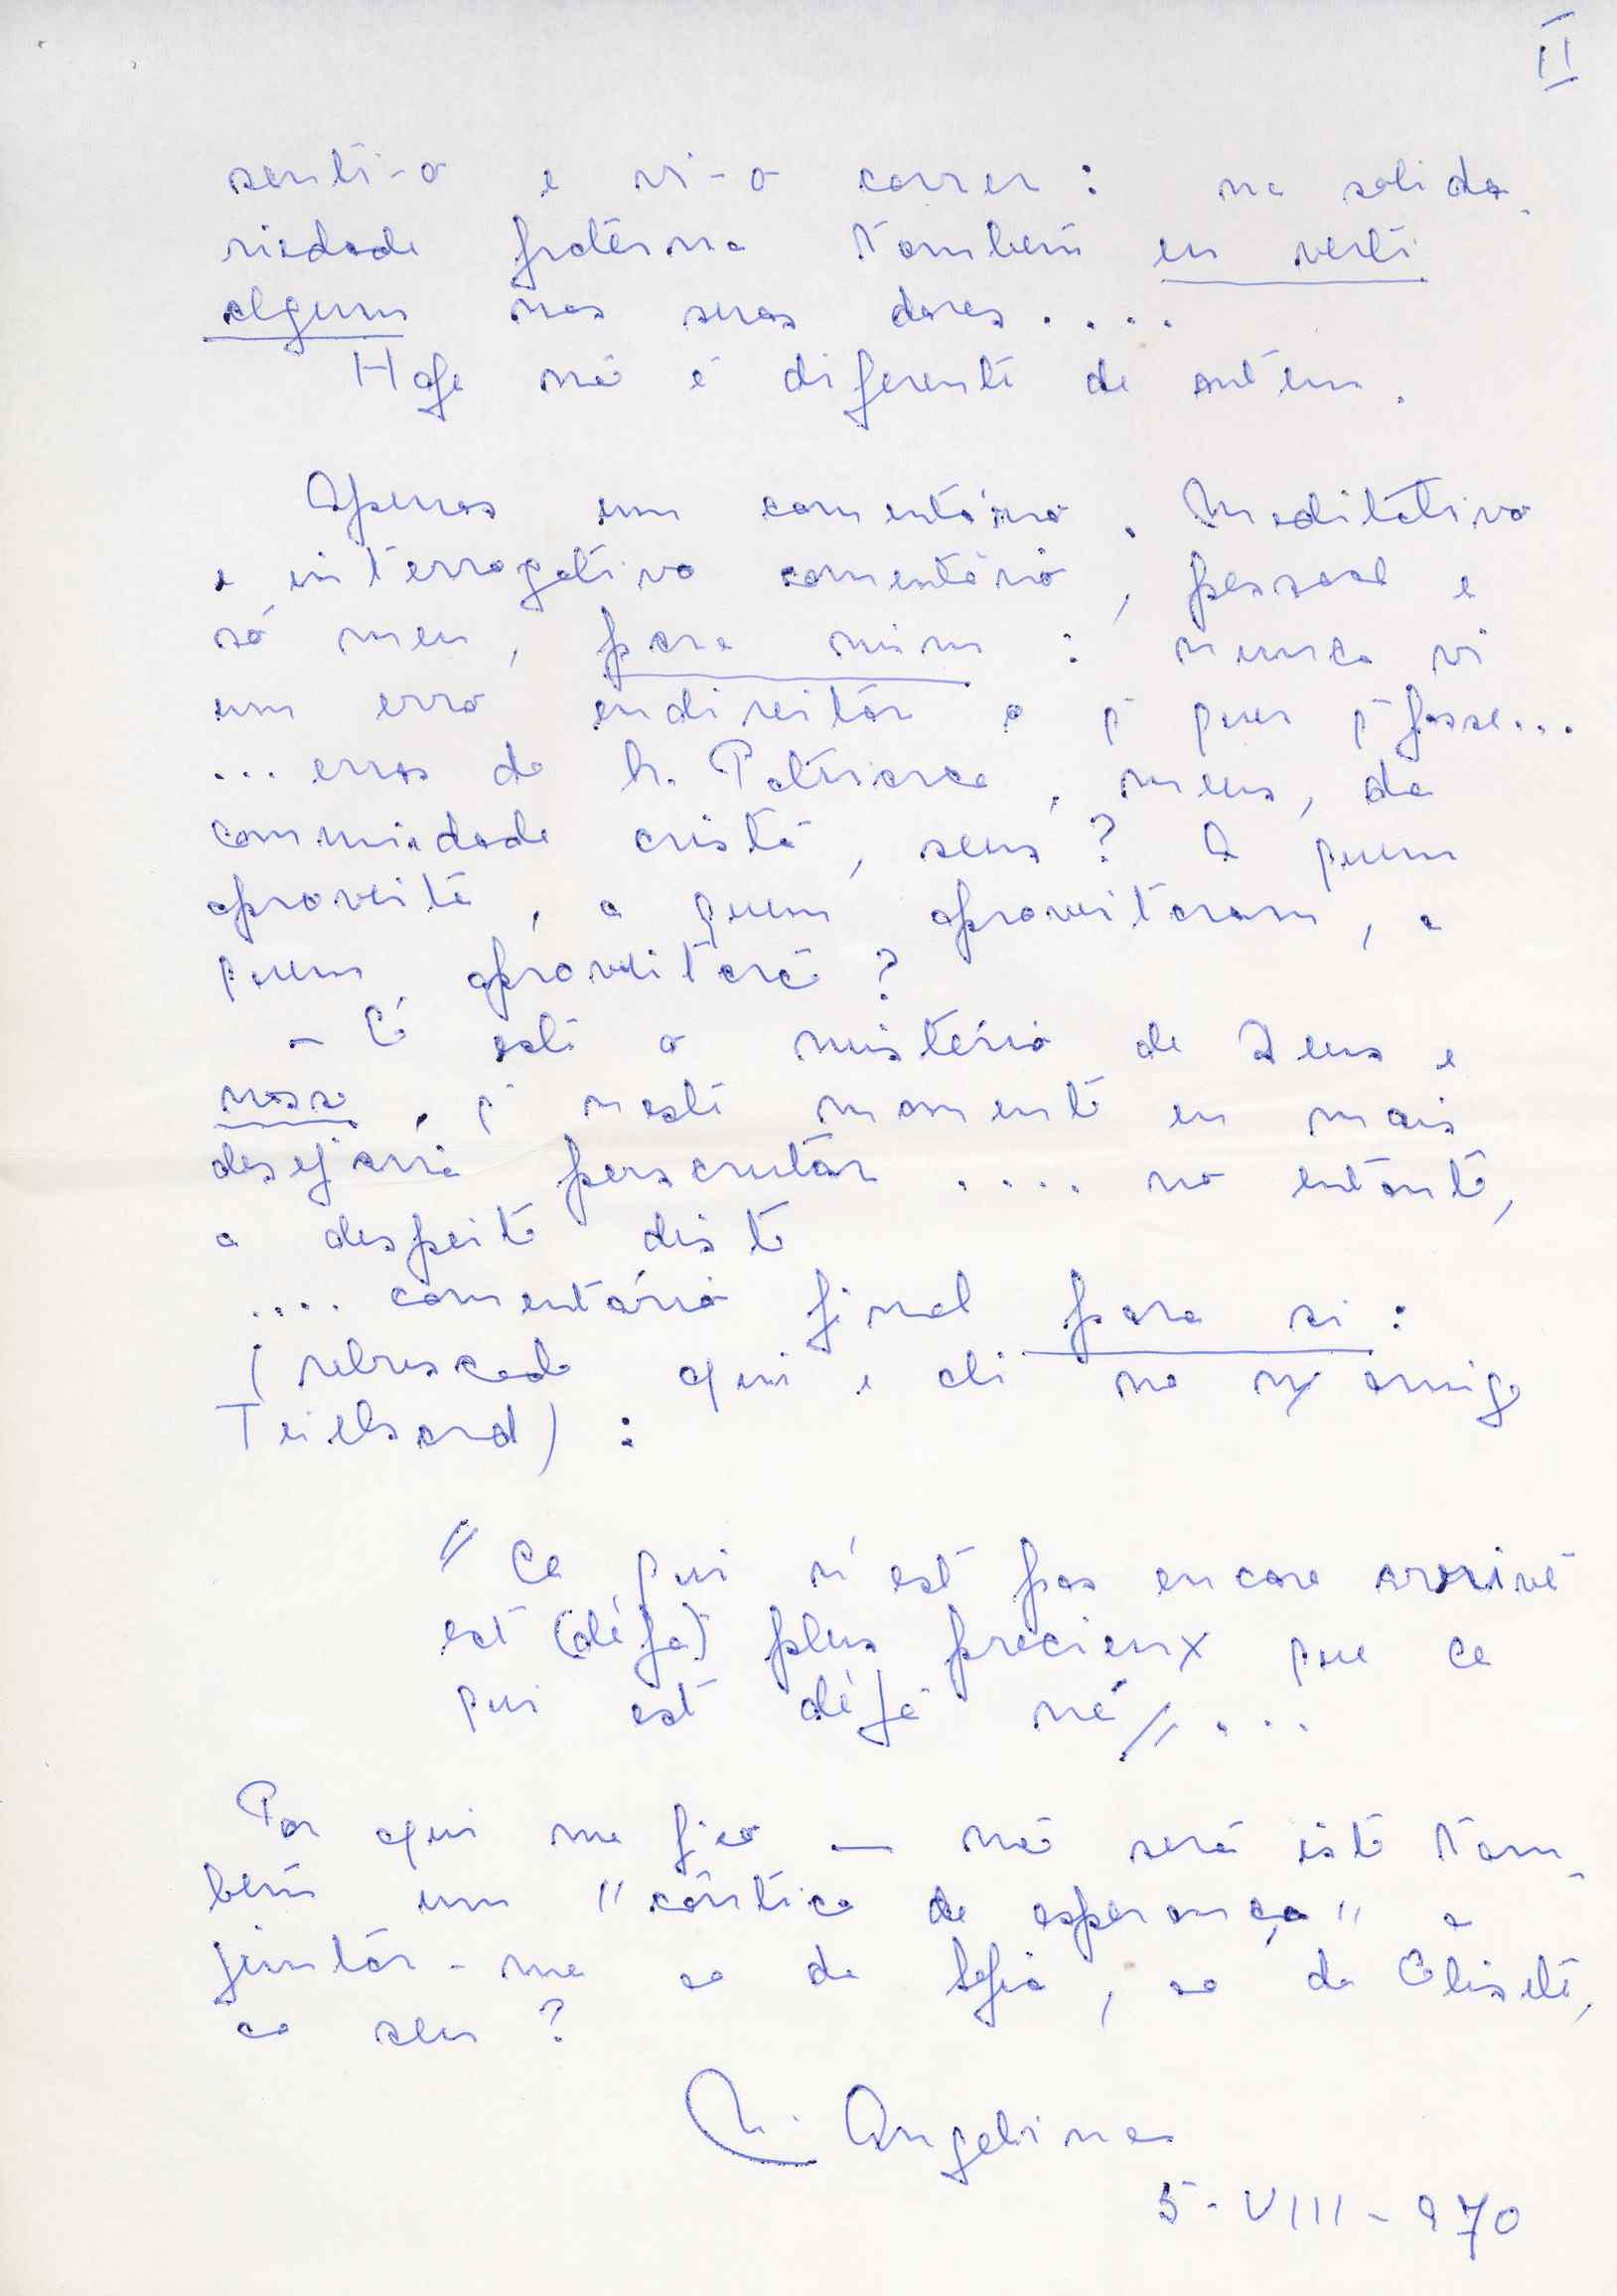 II
senti-o e vi-o correr: na solida-
riedade fraterna também eu verti
algum nas suas dores....
Hoje não é diferente de ontem.
Apenas um comentário. Meditativo
e interrogativo comentário, pessoal e
só meu, para mim: nunca vi
um erro endireitar o q̃ quer q̃ fosse...
...erros do Patriarca, meus, da
comunidade cristã, seus? A quem
aproveita, a quem aproveitaram, a
quem aproveitará?
- Cá está o mistério de Deus e
nosso, q̃ neste momento eu mais
desejaria perscrutar.... no entanto,
a despeito disto
.... comentário final para si:
(rebuscado aqui e ali no nx/ amigo
Teilhard):
"Ce qui n'est pas encore arrivé
est (déjà) plus precieux que ce
qui est déjà né"...
Por aqui me fico — não será isto tam-
bém um "cântico de esperança" a
juntar-me ao da Sofia, ao da Elisete,
ao seu?
Angelina
5-VIII-970